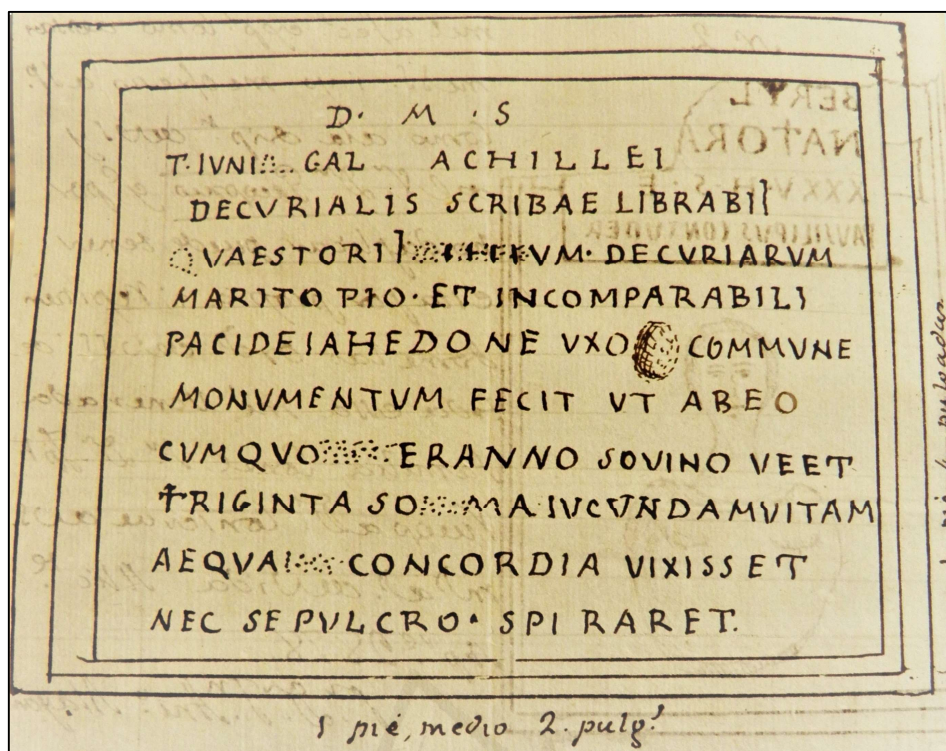 D. M. S
T. IVNI GAL ACHILLEI
DECVRIALIS SCRIBAE LIBRABII
QVAESTORII VM. DECVRIARVM
MARITO PIO. ET INCOMPARABILI
PACIDEIAHEDONE VXO COMMVNE
MONVMENTVM FECIT VT ABEO
CVMQVO ERANNO SOVINO VEET
TRIGINTA SO MA IVCVNDAMVITAM
AEQVA CONCORDIA VIXISSET
NEC SEPVLCRO. SPIRARET.
1 pié, medio 2. pulg.